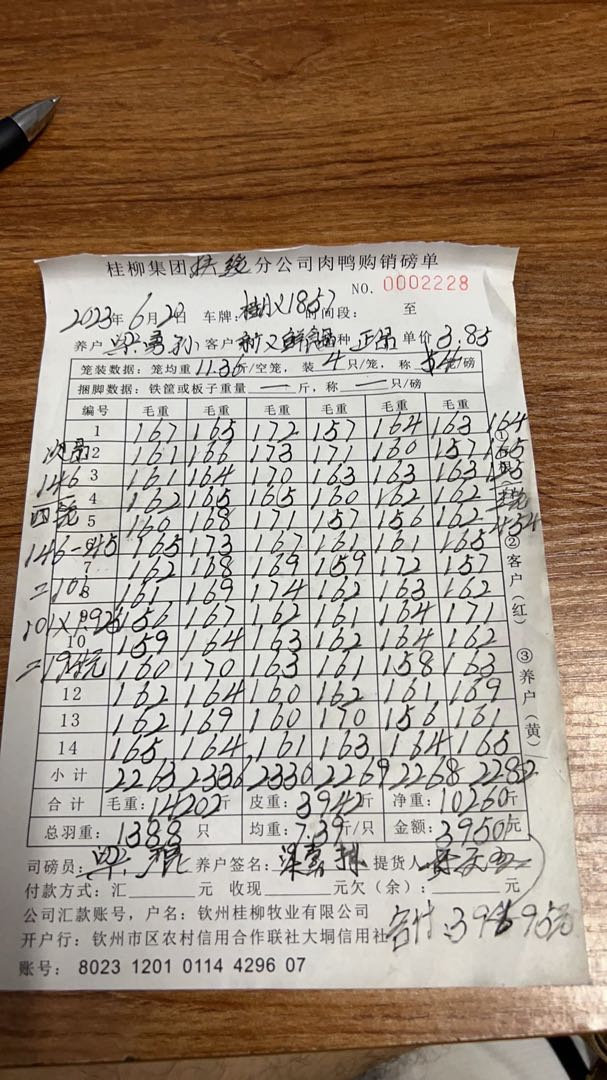 桂柳集团扶绥分公司肉鸭购销磅单
NO. 0002228
2023年6月20日 车牌:桂 1857 时间段: 至
养户 客户 品种 正品 单价 3.85
笼装数据:笼均重 11.36 斤/空笼,装 4 只/笼,称 笼/磅
捆脚数据:铁筐或板子重量 一 斤,称 一 只/磅
编号 毛重 毛重 毛重 毛重 毛重 毛重
1 167 165 172 157 164 163 164
2 161 166 173 171 160 157 165
3 161 164 170 163 163 163
4 162 165 165 160 162 162
5 160 168 171 157 156 162 454
6 165 173 167 161 161 165
7 162 168 169 159 172 157
8 161 169 174 162 163 162
9 156 167 162 161 164 171
10 159 164 163 162 164 162
160 170 163 161 158 163
12 162 164 160 162 161 169
13 162 169 160 170 156 161
14 165 164 161 163 164 165
小计 2263 2336 2330 2269 2268 2282
合计 毛重:14202斤 皮重:3942斤 净重:10260斤
总羽重:1388 只 均重:7.39斤/只 金额:39501元
146
四笼
146-45
=101
②客户(红)
③养户(黄)
司磅员: 养户签名: 提货人
付款方式:汇 元 收现 元欠(余): 元
公司汇款账号,户名:钦州桂柳牧业有限公司
开户行:钦州市区农村信用合作联社大垌信用社
合付:
账号: 8023 1201 0114 4296 07